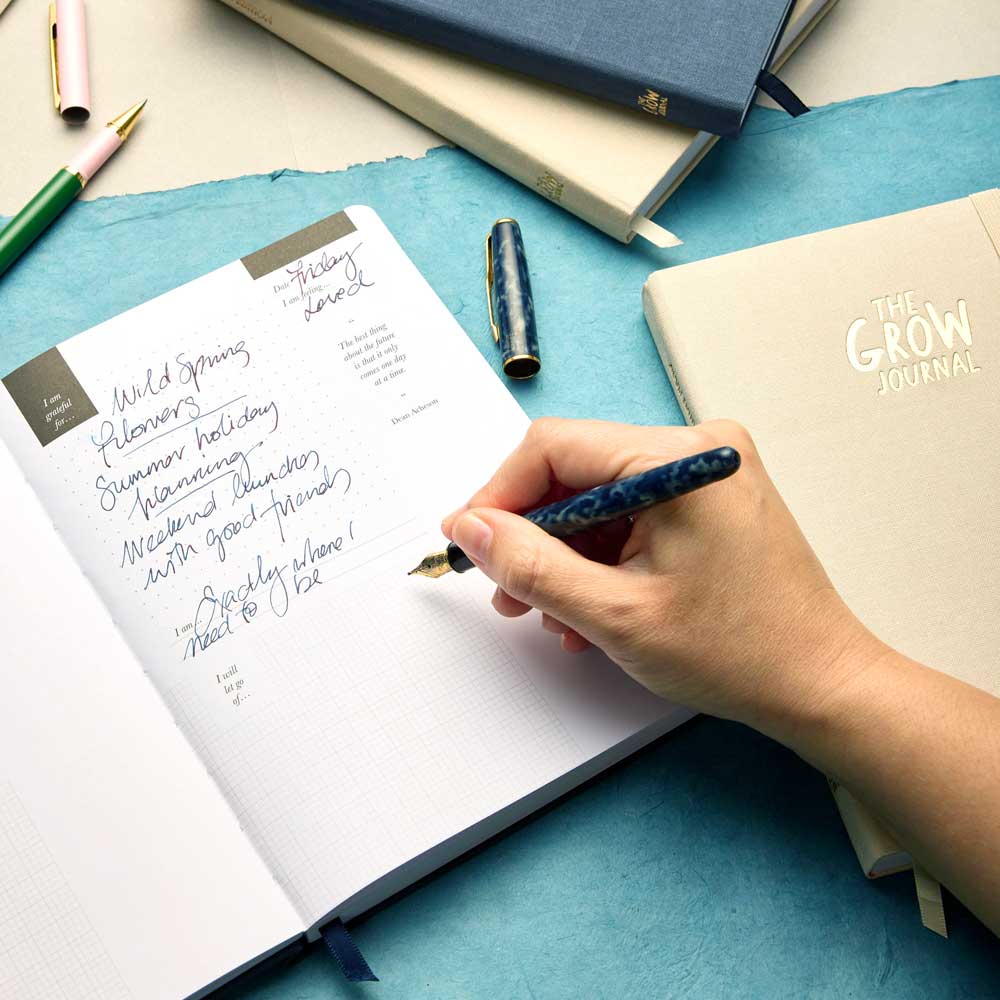 THE
GROW
JOURNAL
Date Friday
I am feeling...
Loved
"
The best thing
about the future
is that it only
comes one day
at a time.
"
Dean Acheson
I am
grateful
for...
Wild Spring
flowers
Summer holiday
planning
Weekend lunches
with good friends
I am... Exactly where I
need to be
I will
let go
of...
THE
GROW
JOURNAL